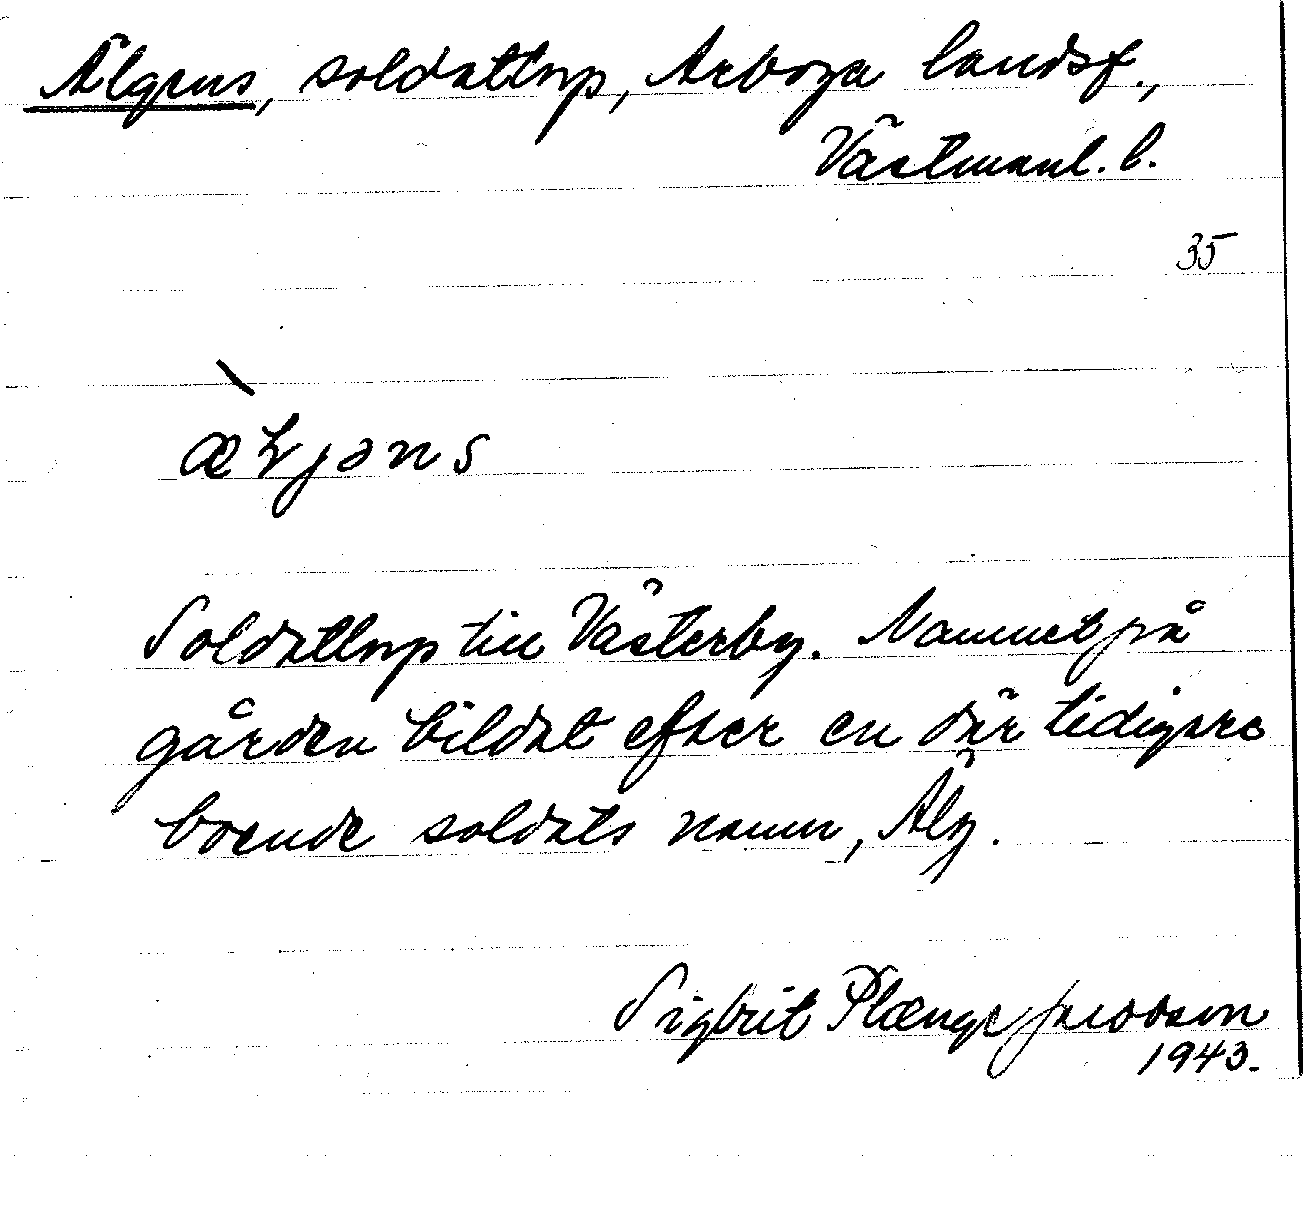 Älgens, soldattorp, Arboga landsf.,
Västmanl. l.
35
æɫjəns
Soldattorp till Västerby. Namnet på
gården bildat efter en där tidigare
boende soldats namn, Älg.
Sigbrit Plænge Jacobson
1943.